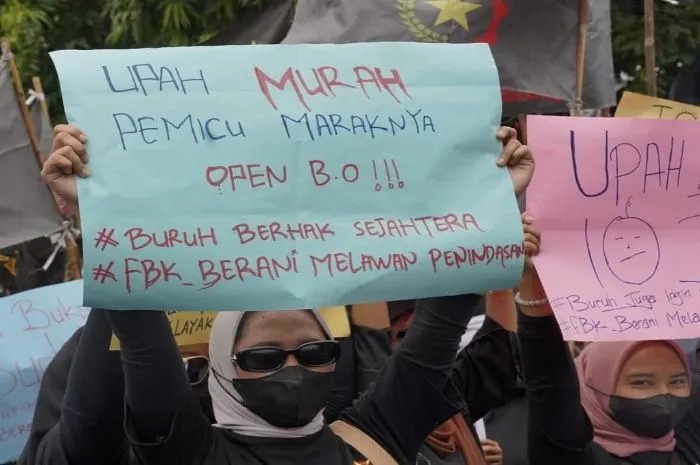 UPAH MURAH
PEMICU MARAKNYA
OPEN B.O !!!
#BURUH BERHAK SEJAHTERA
#FBK_BERANI MELAWAN PENINDASAN
UPAH
#Buruh Juga Ingin
#FBK_Berani Mela
LAYAK